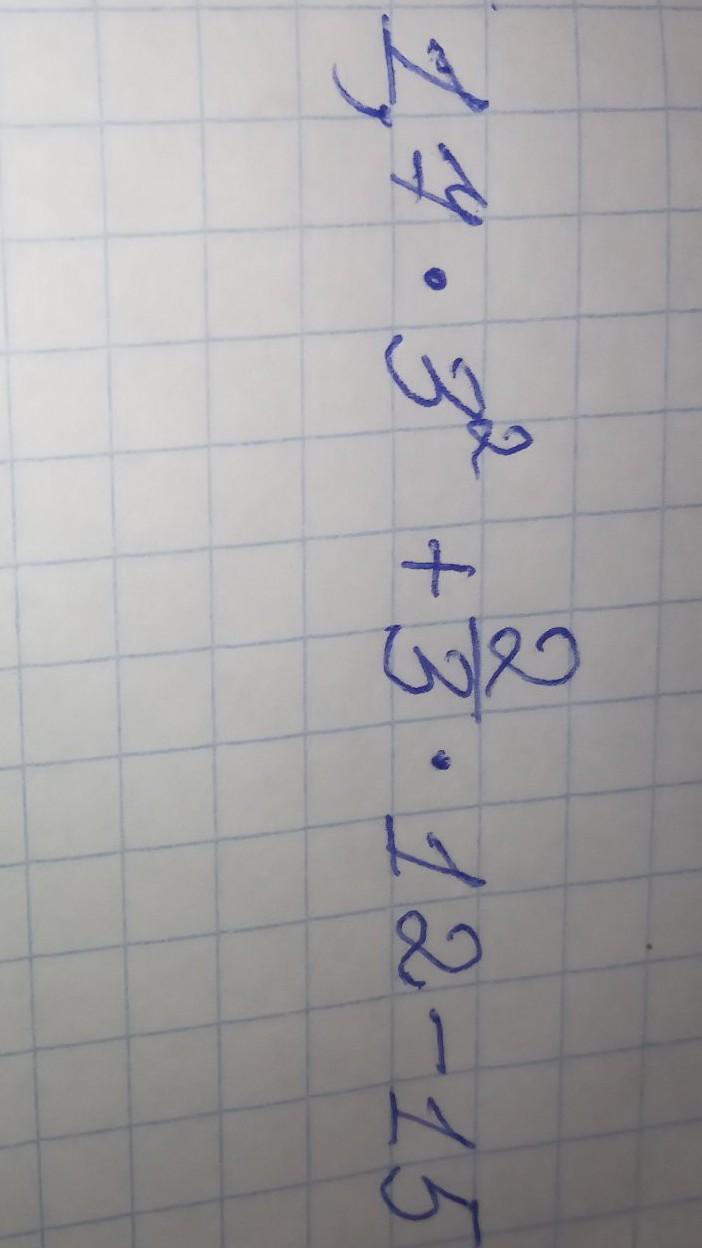 1,7 · 3² + 2/3 · 12 - 15